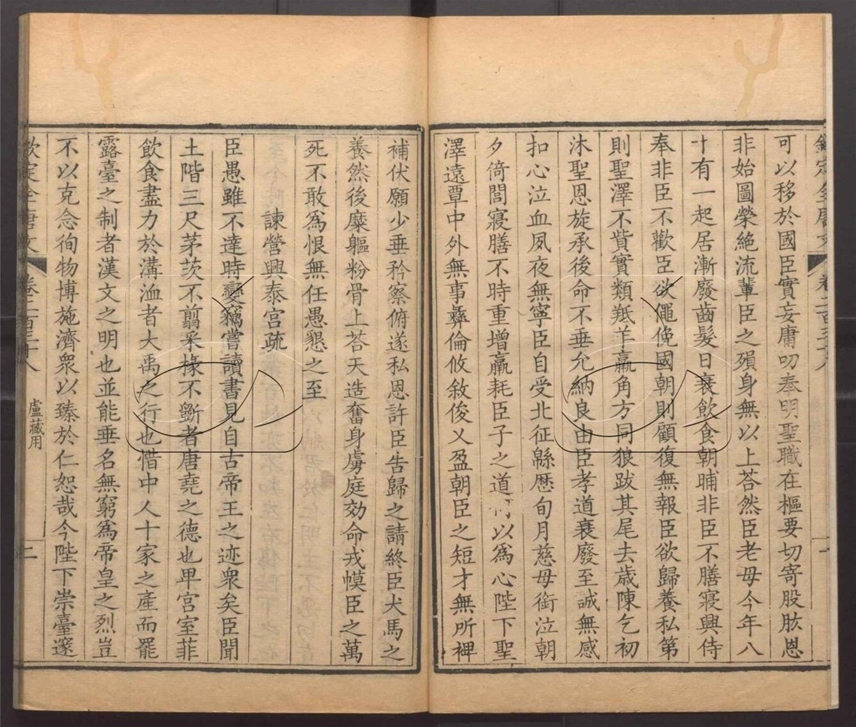 可以移於國臣實妄庸叨奉明聖職在樞要切寄股肱恩
非始圖榮絶流輩臣之殞身無以上荅然臣老母今年八
十有一起居漸廢齒髮日衰飲食朝晡非臣不膳寢興侍
奉非臣不歡臣欲僶俛國朝則顧復無報臣欲歸養私第
則聖澤不貲實類羝羊羸角方同狼跋其尾去歲陳乞初
沐聖恩旋承後命不垂允納良由臣孝道衰廢至誠無感
扣心泣血夙夜無寧臣自受北征緜歴旬月慈母銜泣朝
夕倚閭寢膳不時重增羸耗臣子之道何以爲心陛下聖
澤遠覃中外無事彝倫攸敘俊乂盈朝臣之短才無所裨
補伏願少垂矜察俯遂私恩許臣告歸之請終臣犬馬之
養然後糜軀粉骨上荅天造奮身虜庭効命戎幙臣之萬
死不敢爲恨無任愚懇之至
諫營興泰宫疏
臣愚雖不達時變竊嘗讀書見自古帝王之迹衆矣臣聞
土階三尺茅茨不翦采椽不斲者唐堯之德也卑宫室菲
飲食盡力於溝洫者大禹之行也惜中人十家之産而罷
露臺之制者漢文之明也並能垂名無窮爲帝皇之烈豈
不以克念徇物博施濟衆以臻於仁恕哉今陛下崇臺邃
欽定全唐文
盧藏用
二